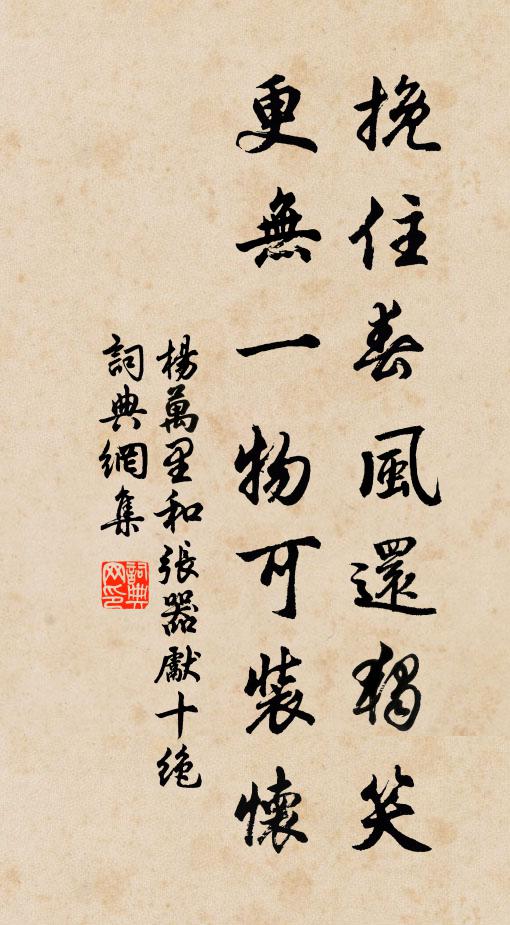 挽住春風還獨笑
更無一物可裝懷
楊萬里和張器獻十絶
詞典網集
詞典
网印